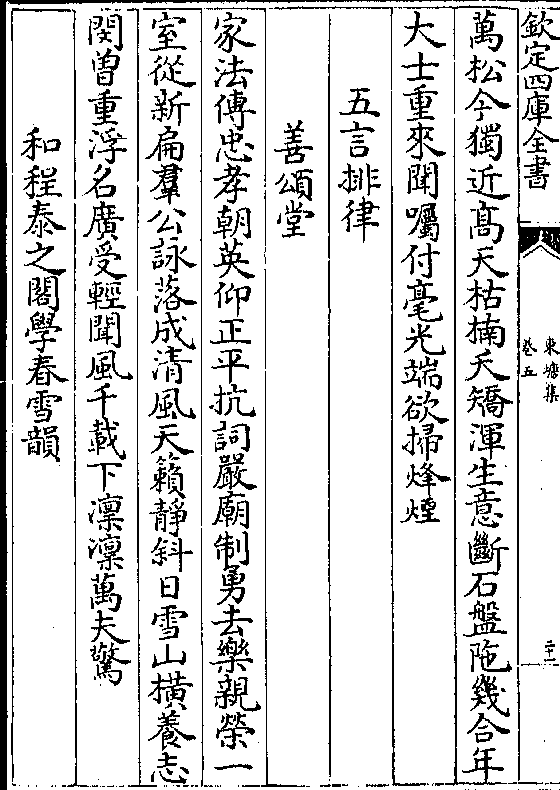 欽定四庫全書
東塘集
卷五
二十一
萬松今獨近髙天枯楠夭矯渾生意斷石盤陁幾合年
大士重來聞囑付毫光端欲掃烽煙
五言排律
善頌堂
家法傳忠孝朝英仰正平抗詞嚴廟制勇去樂親榮一
室從新扁羣公詠落成清風天籟靜斜日雪山横養志
閔曽重浮名廣受輕聞風千載下凛凛萬夫驚
和程泰之閣學春雪韻